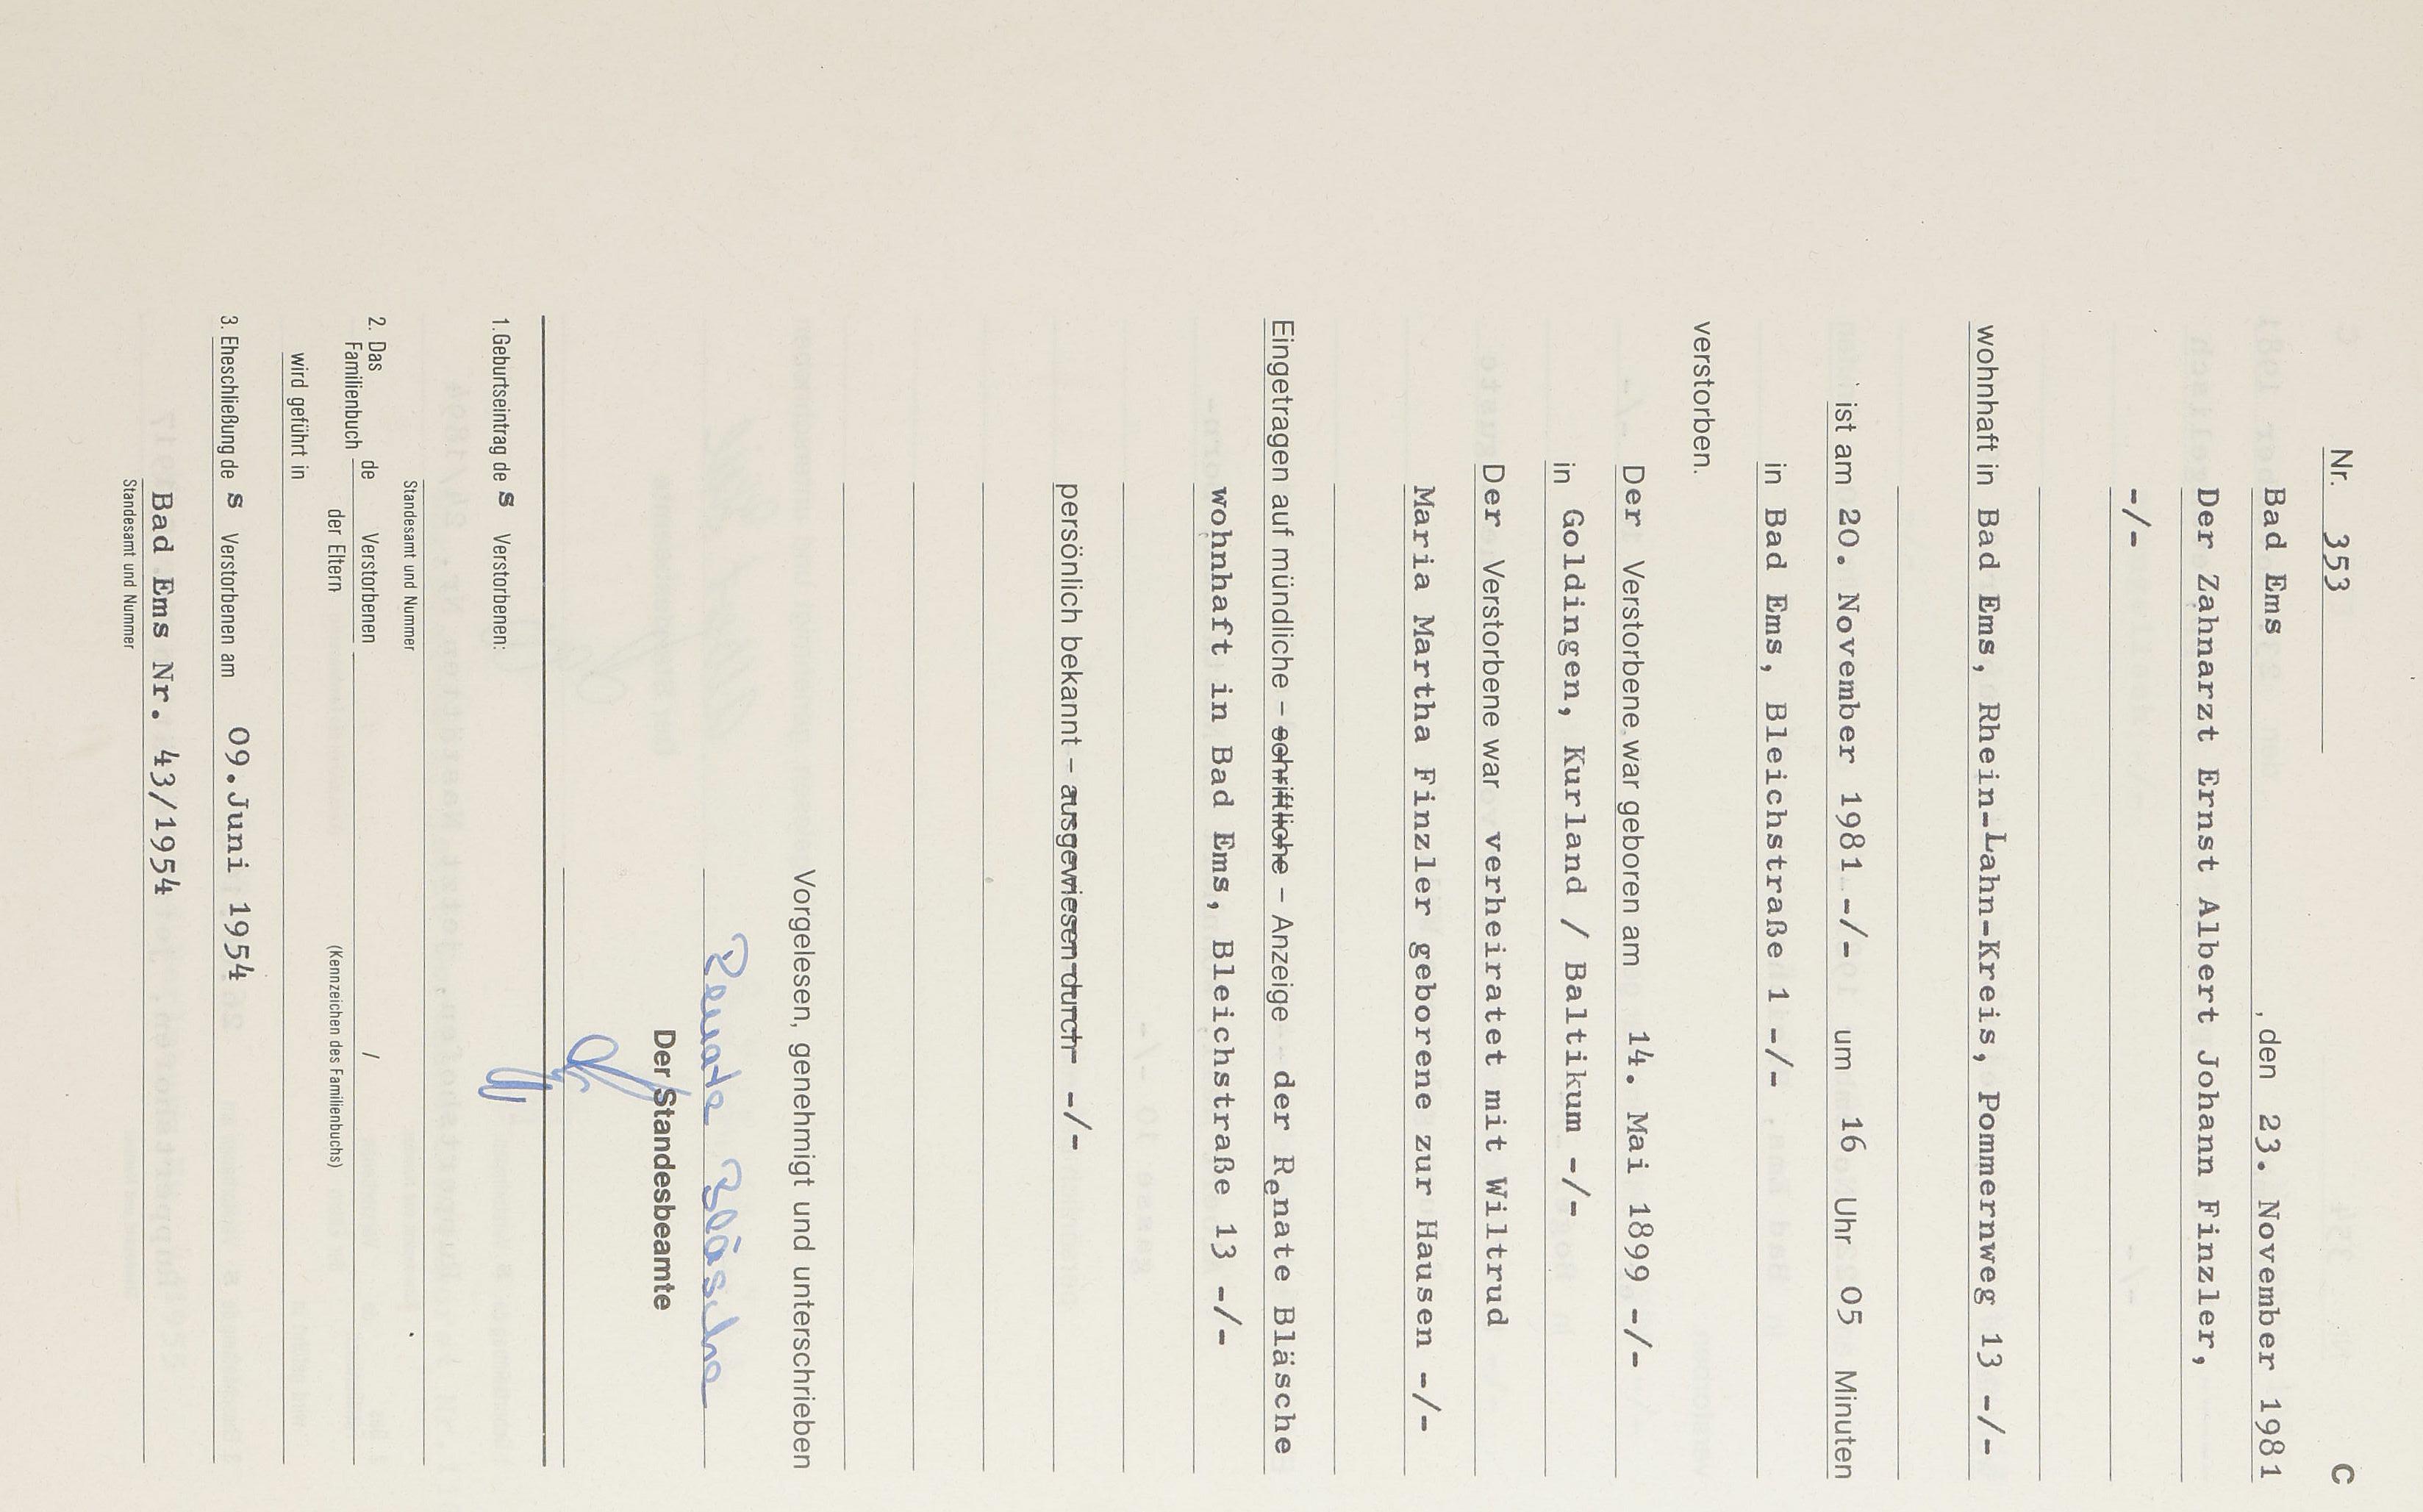 Nr. 353 C
Bad Ems , den 23. November 1981
Der Zahnarzt Ernst Albert Johann Finzler,
-/-
wohnhaft in Bad Ems, Rhein-Lahn-Kreis, Pommernweg 13 -/-
ist am 20. November 1981 -/- um 16 Uhr 05 Minuten
in Bad Ems, Bleichstraße 1 -/-
verstorben.
Der Verstorbene war geboren am 14. Mai 1899 -/-
in Goldingen, Kurland / Baltikum -/-
Der Verstorbene war verheiratet mit Wiltrud
Maria Martha Finzler geborene zur Hausen -/-
Eingetragen auf mündliche – schriftliche – Anzeige der Renate Bläsche
wohnhaft in Bad Ems, Bleichstraße 13 -/-
persönlich bekannt – ausgewiesen durch -/-
Vorgelesen, genehmigt und unterschrieben
Renate Bläsche
Der Standesbeamte
1. Geburtseintrag de s Verstorbenen:
Standesamt und Nummer
2. Das Familienbuch de Verstorbenen /
der Eltern (Kennzeichen des Familienbuchs)
wird geführt in
3. Eheschließung de s Verstorbenen am 09.Juni 1954
Bad Ems Nr. 43/1954
Standesamt und Nummer